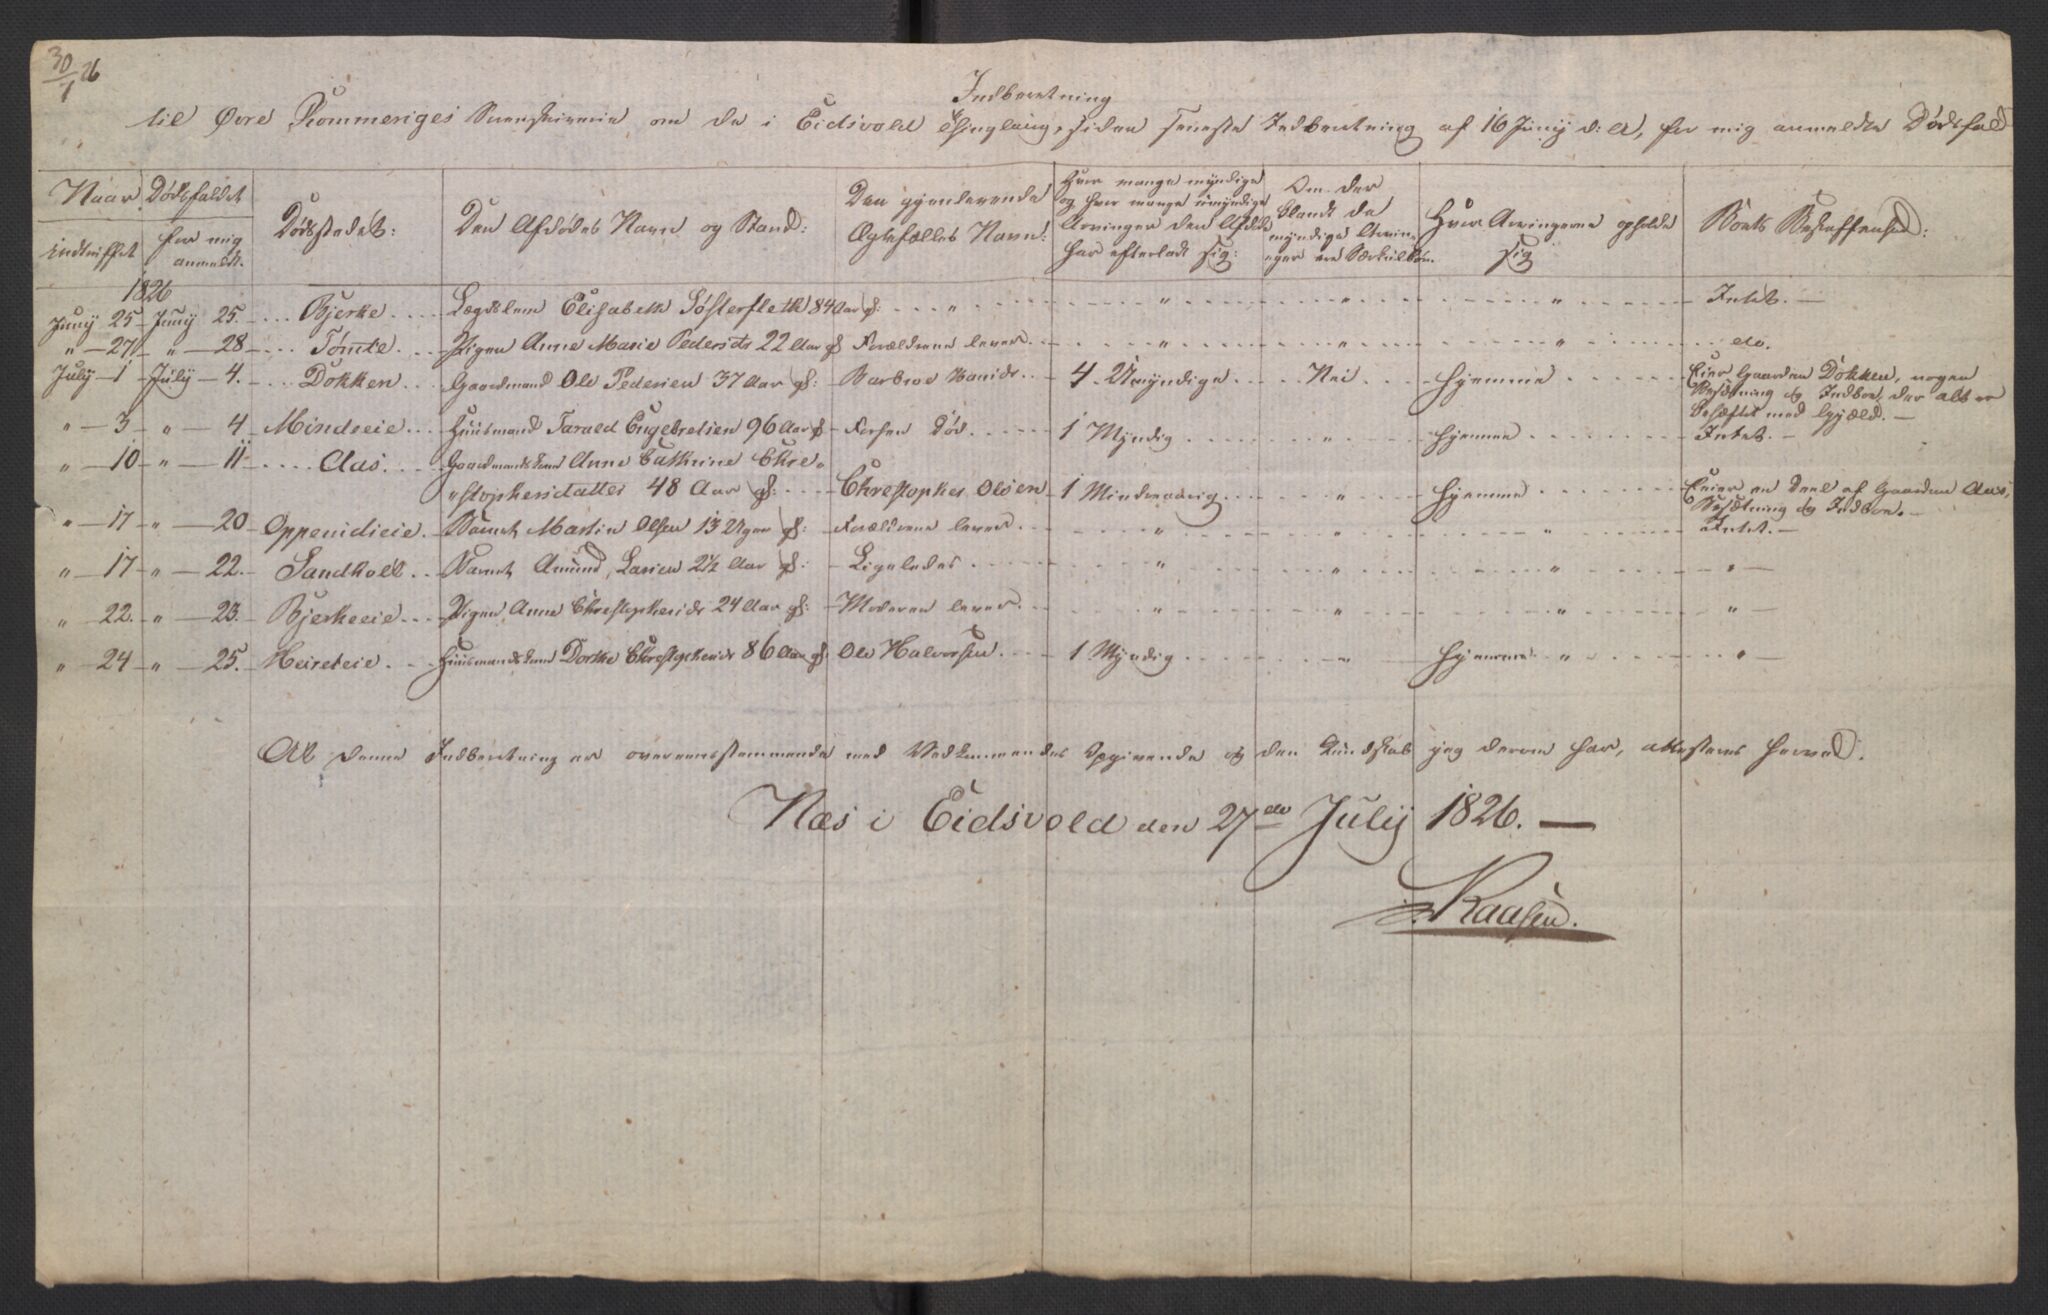 30/7 26
Indberetning
til Øvre Rommeriges Sorenskriverie om de i Eidsvold Thinglaug, siden seneste Indberetning af 16 Juny d: A, for mig anmeldte Dødsfald
Naar Dødsfaldet
indtruffet
for mig anmeldt.
Dødsstedet:
Den Afdødes Navn og Stand:
Den gjenlevende Ægtefælles Navn:
Hvor mange myndige og hvor mange umyndige Arvinger den Afdøde har efterladt sig:
Om der blandt de myndige Arvinger ere
Hvor Arvingerne opholde sig
Boets Beskaffenhed:
1826
Juny 25 Juny 25. Bjerke Lægdslem Elisabeth Søsterfleth 84 Aar gl: " " " " Intet. —
" — 27 — " — 28 Tømte Pigen Anne Marie Pedersdr 22 Aar gl Forældrene lever " " " do.
July — 1 July — 4. Dokken Gaardmand Ole Pedersen 37 Aar gl: Barbroe Hansdr 4 Umyndige Nei hjemme Eier Gaarden Dokken, nogen
Besætning og Indboe, der alt er
behæftet med Gjæld. —
" — 3 " — 4 Mindreeie Huusmand Tarald Engebretsen 96 Aar gl Konen død 1 Myndig " hjemme Intet. —
" — 10 — " — 11 Aas. Gaardmandskone Anne Cathrine Chre-
"stophersdatter 48 Aar gl: Christopher Olsen 1 Mindreaarig " hjemme Eier en Deel af Gaarden Aas,
Besætning og Indboe. —
" — 17 " — 20 Oppenidieie. Barnet Martin Olsen 13 Uger gl: Forældrene lever " " " Intet. —
" — 17 — " — 22. Sandholt Barnet Amund Larsen 2½ Aar gl: Ligeledes " " " " —
" — 22. — " — 23. Bjerkeeie Pigen Anne Chrestophersdr 24 Aar gl: Moderen lever " " " " —
" — 24 — " — 25. Heireteie Huusmandskone Dorthe Chrestophersdr 86 Aar gl. Ole Halvorsen 1 Myndig " hjemme " " —
At denne Indberetning er overeensstemmende med Vedkommendes Opgivende og den Kundskab jeg derom har, attesteres herved.
Næs i Eidsvold den 27de July 1826. —
Kaasen.